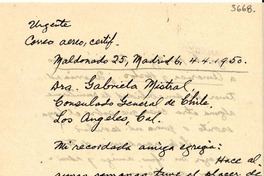 3668.
Urgente
Correo aereo, certif.
Maldonado 25, Madrid 6, 4.4.1950.
Dra. Gabriela Mistral,
Consulado General de Chile,
Los Angeles, Cal.
Mi recordada amiga egregia:
Hace al
gunas semanas tuve el placer de